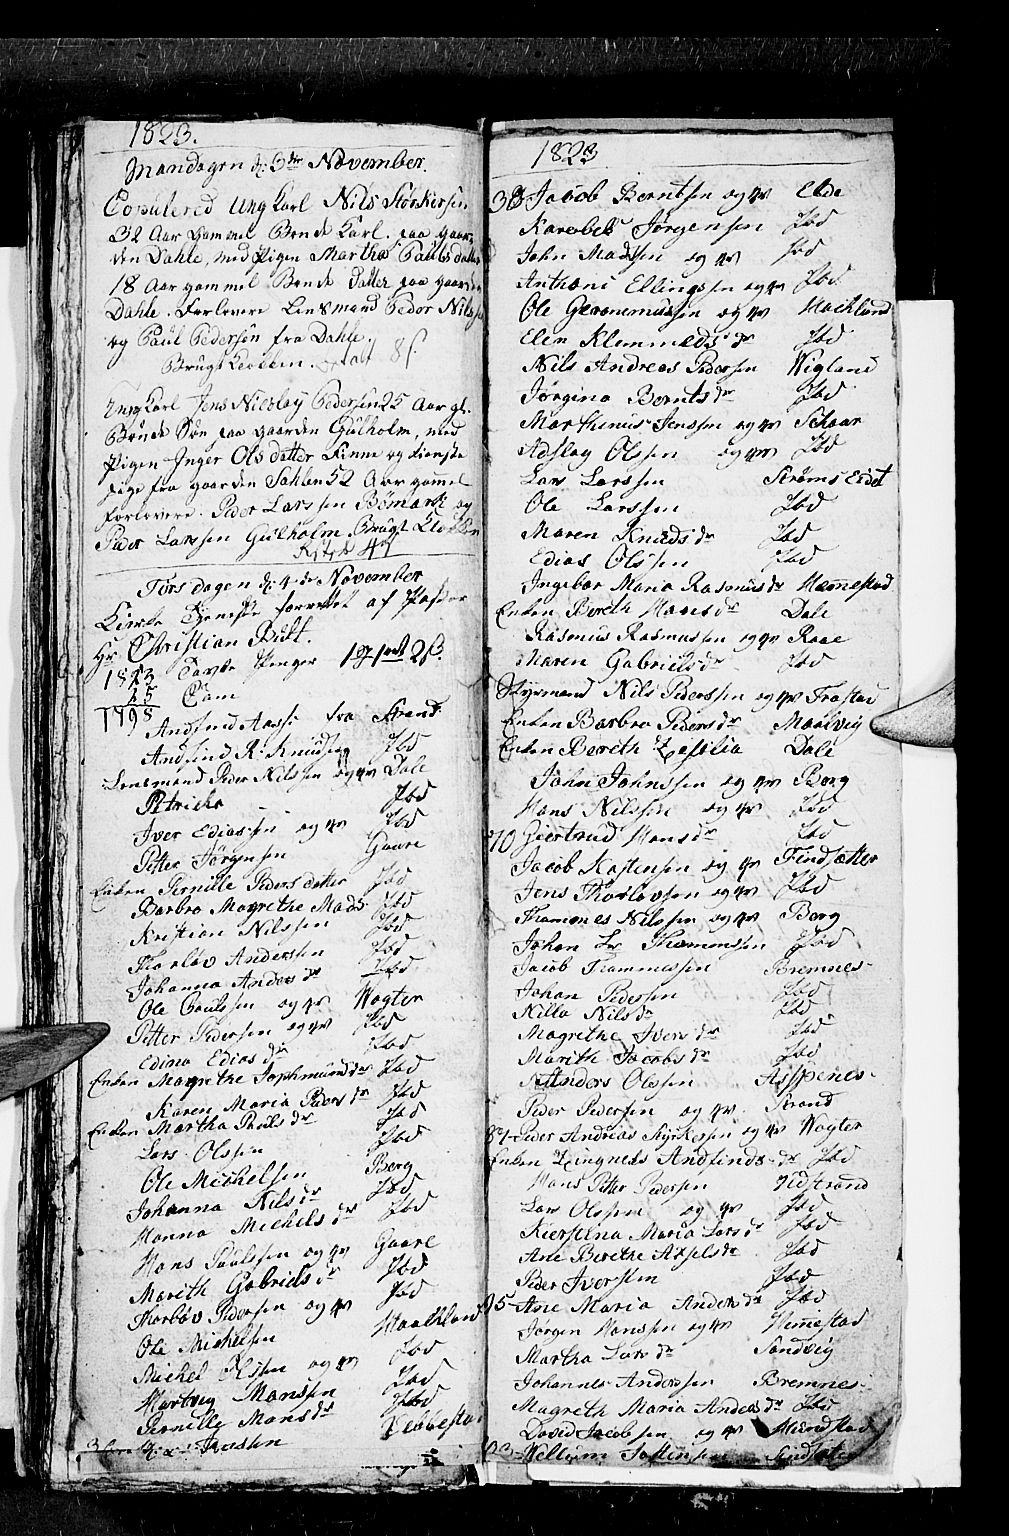 1823.
Mandagen d: 3de November.
Copulered Ung Karl Nils Størkersen
32 Aar Gammel Bonde Karl. paa Gaar-
den Dahle, med Pigen Martha Paulsdatter
18 Aar gammel Bonde Datter paa gaarden
Dahle. Forlovere Lensmand Peder Nilssen
og Paul Pedersen fra Dahle.
Brugt Klokken.
Ung Karl Jens Nicolay Pedersen 25 Aar gl.
Bonde Søn paa Gaarden Gulholm, med
Pigen Inger Olsdatter Finne og tieneste
Pige fra gaarden Sahlen 52 Aar gamel
Forlovere. Peder Larssen Bømark og
Peder Larssen Gulholm Brugt Klokken
Torsdagen d: 4de November
Kirke Tjeneste forrettet af Pastor
Hr Christian Bull.
1823 Tavle Penger
25 Com
1798
Andfind Aasse fra Strand
Andfind R. Knudsen Ibd
Lensmand Peder Nilssen og qv Dale
Petricka Ibd
Iver Ediassen og qv Ibd
Petter Jørgensen Gaare
Enken Pernille Pedersdatter Ibd
Barbro Magrethe Mads Ibd
Kristian Nilssen Ibd
Thorløv Anderssen Ibd
Johanna Anders dr Ibd
Ole Paulssen og qv Wogter
Petter Pedersen og qv Ibd
Edina Edias dr Ibd
Enken Magrethe dr Ibd
Karen Maria Peders dr Ibd
Enken Martha Pauls dr Ibd
Lars Olssen Ibd
Ole Michelsen Berg
Johanna Nils dr Ibd
Hanna Michels dr Ibd
Hans Paulssen og qv Gaare
Marith Gabriels dr Ibd
Thorløv Pedersen og qv Ibd
Ole Michelsen Haakland
Michel Olssen og qv Ibd
Hartvig Hanssen Ibd
Pernille Hans dr Ibd
1823
38 Jacob Berntsen og qv Elde
Karolbek Jørgensen Ibd
John Madssen og qv Ibd
Anthoni Ellingssen og qv Ibd
Ole Geronemussen og qv Haakland
Elen Klemmeds dr Ibd
Nils Andreas Pedersen Wigland
Jørgina Bernts dr Ibd
Marthinus Jenssen og qv Schaar
Adslog Olssen og qv Ibd
Lars Larssen Strøms Eidet
Ole Larssen Ibd
Maren Knuds dr Ibd
Edias Olssen Ibd
Ingebor Maria Rasmus dr Hemestad
Enken Bereth Hans dr Dale
Rasmus Rasmussen og qv Raae
Maren Gabriels dr Ibd
Styrmand Nils Pederssen og qv Frøstad
Enken Barbro Peders dr Maalvig
Enken Berith Zesilia Dale
John Johnssen og qv Berg
Hans Nilssen og qv Ibd
70 Giertrud Hans dr Ibd
Jacob Kastensen og qv Findsætter
Jens Thorløvsen og qv Ibd
Thamones Nilssen og qv Berg
Johan Lr Thamonssen Ibd
Jacob Thammessen Bremnes
Johan Pedersen Ibd
Nilla Nils dr Ibd
Magrethe Ivers dr Ibd
Marith Jacobs dr Ibd
Anders Olssen Aispenes
Peder Pedersen og qv. Strand
87 Peder Andreas Styrkersen og qv Wogter
Enken Andfinds dr Ibd
Hans Peter Pedersen Vidstrand
Lars Olssen og qv Ibd
Kierstina Maria Lars dr Ibd
Ane Berethe Axsels dr Ibd
Peder Iverssen Ibd
95 Ane Maria Anders dr Ibd
Jørgen Hanssen og qv Hemestad
Martha Lars dr Sandvig
Johannes Anderssen Bremnes
Magreth Maria Anders dr Ibd
David Jacobsen og qv
Wellium